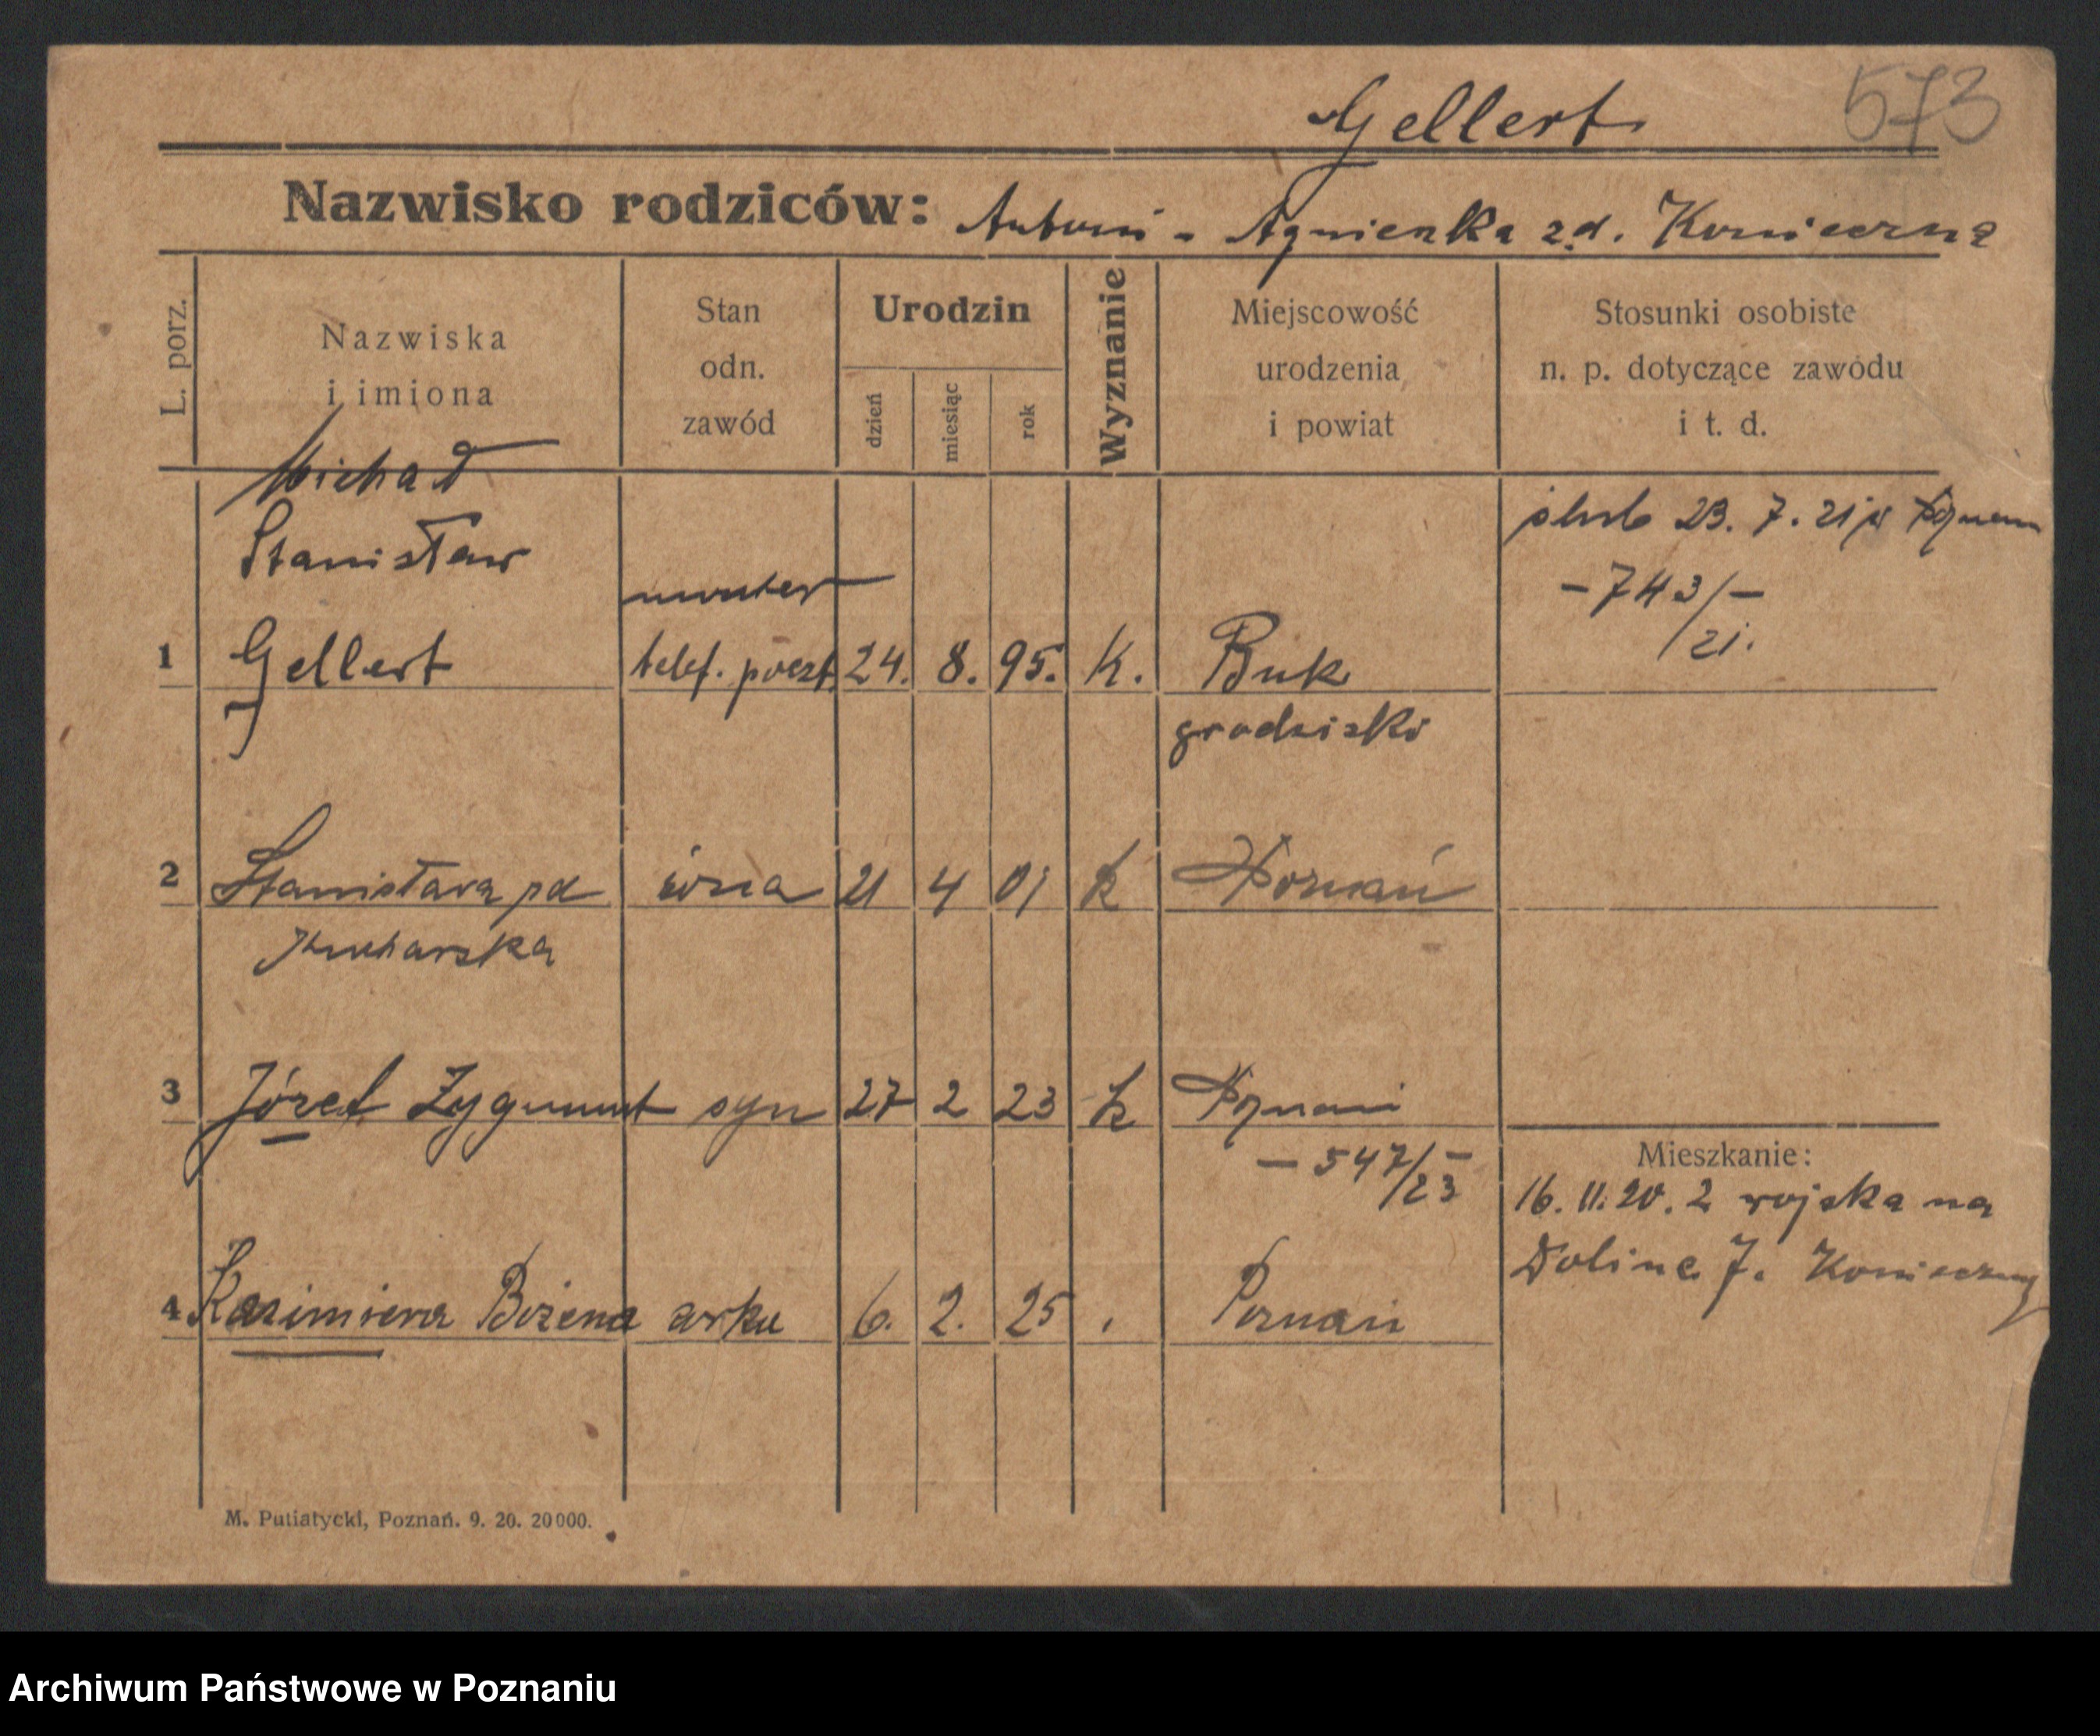 Gellert 573
Nazwisko rodziców: Antoni - Agnieszka z d. Konieczna
L. porz.
Nazwiska
i imiona
Stan
odn.
zawód
Urodzin
dzień
miesiąc
rok
Wyznanie
Miejscowość
urodzenia
i powiat
Stosunki osobiste
n. p. dotyczące zawodu
i t. d.
Michał
Stanisław
monter
ślub 23. 7. 21 w Poznaniu
- 743/21 -
1 Gellert telef. poczt. 24. 8. 95. K. Buk
grodziski
2 Stanisława żona 21 4 01 k Poznań
Kucharska
3 Józef Zygmunt syn 27 2 23 k Poznań
- 547/23 -
Mieszkanie:
16. 11. 20. z wojska na
Dolinę 7. Konieczny
4 Kazimiera Bożena córka 6. 2. 25 Poznań
M. Putiatycki, Poznań. 9. 20. 20000.
Archiwum Państwowe w Poznaniu